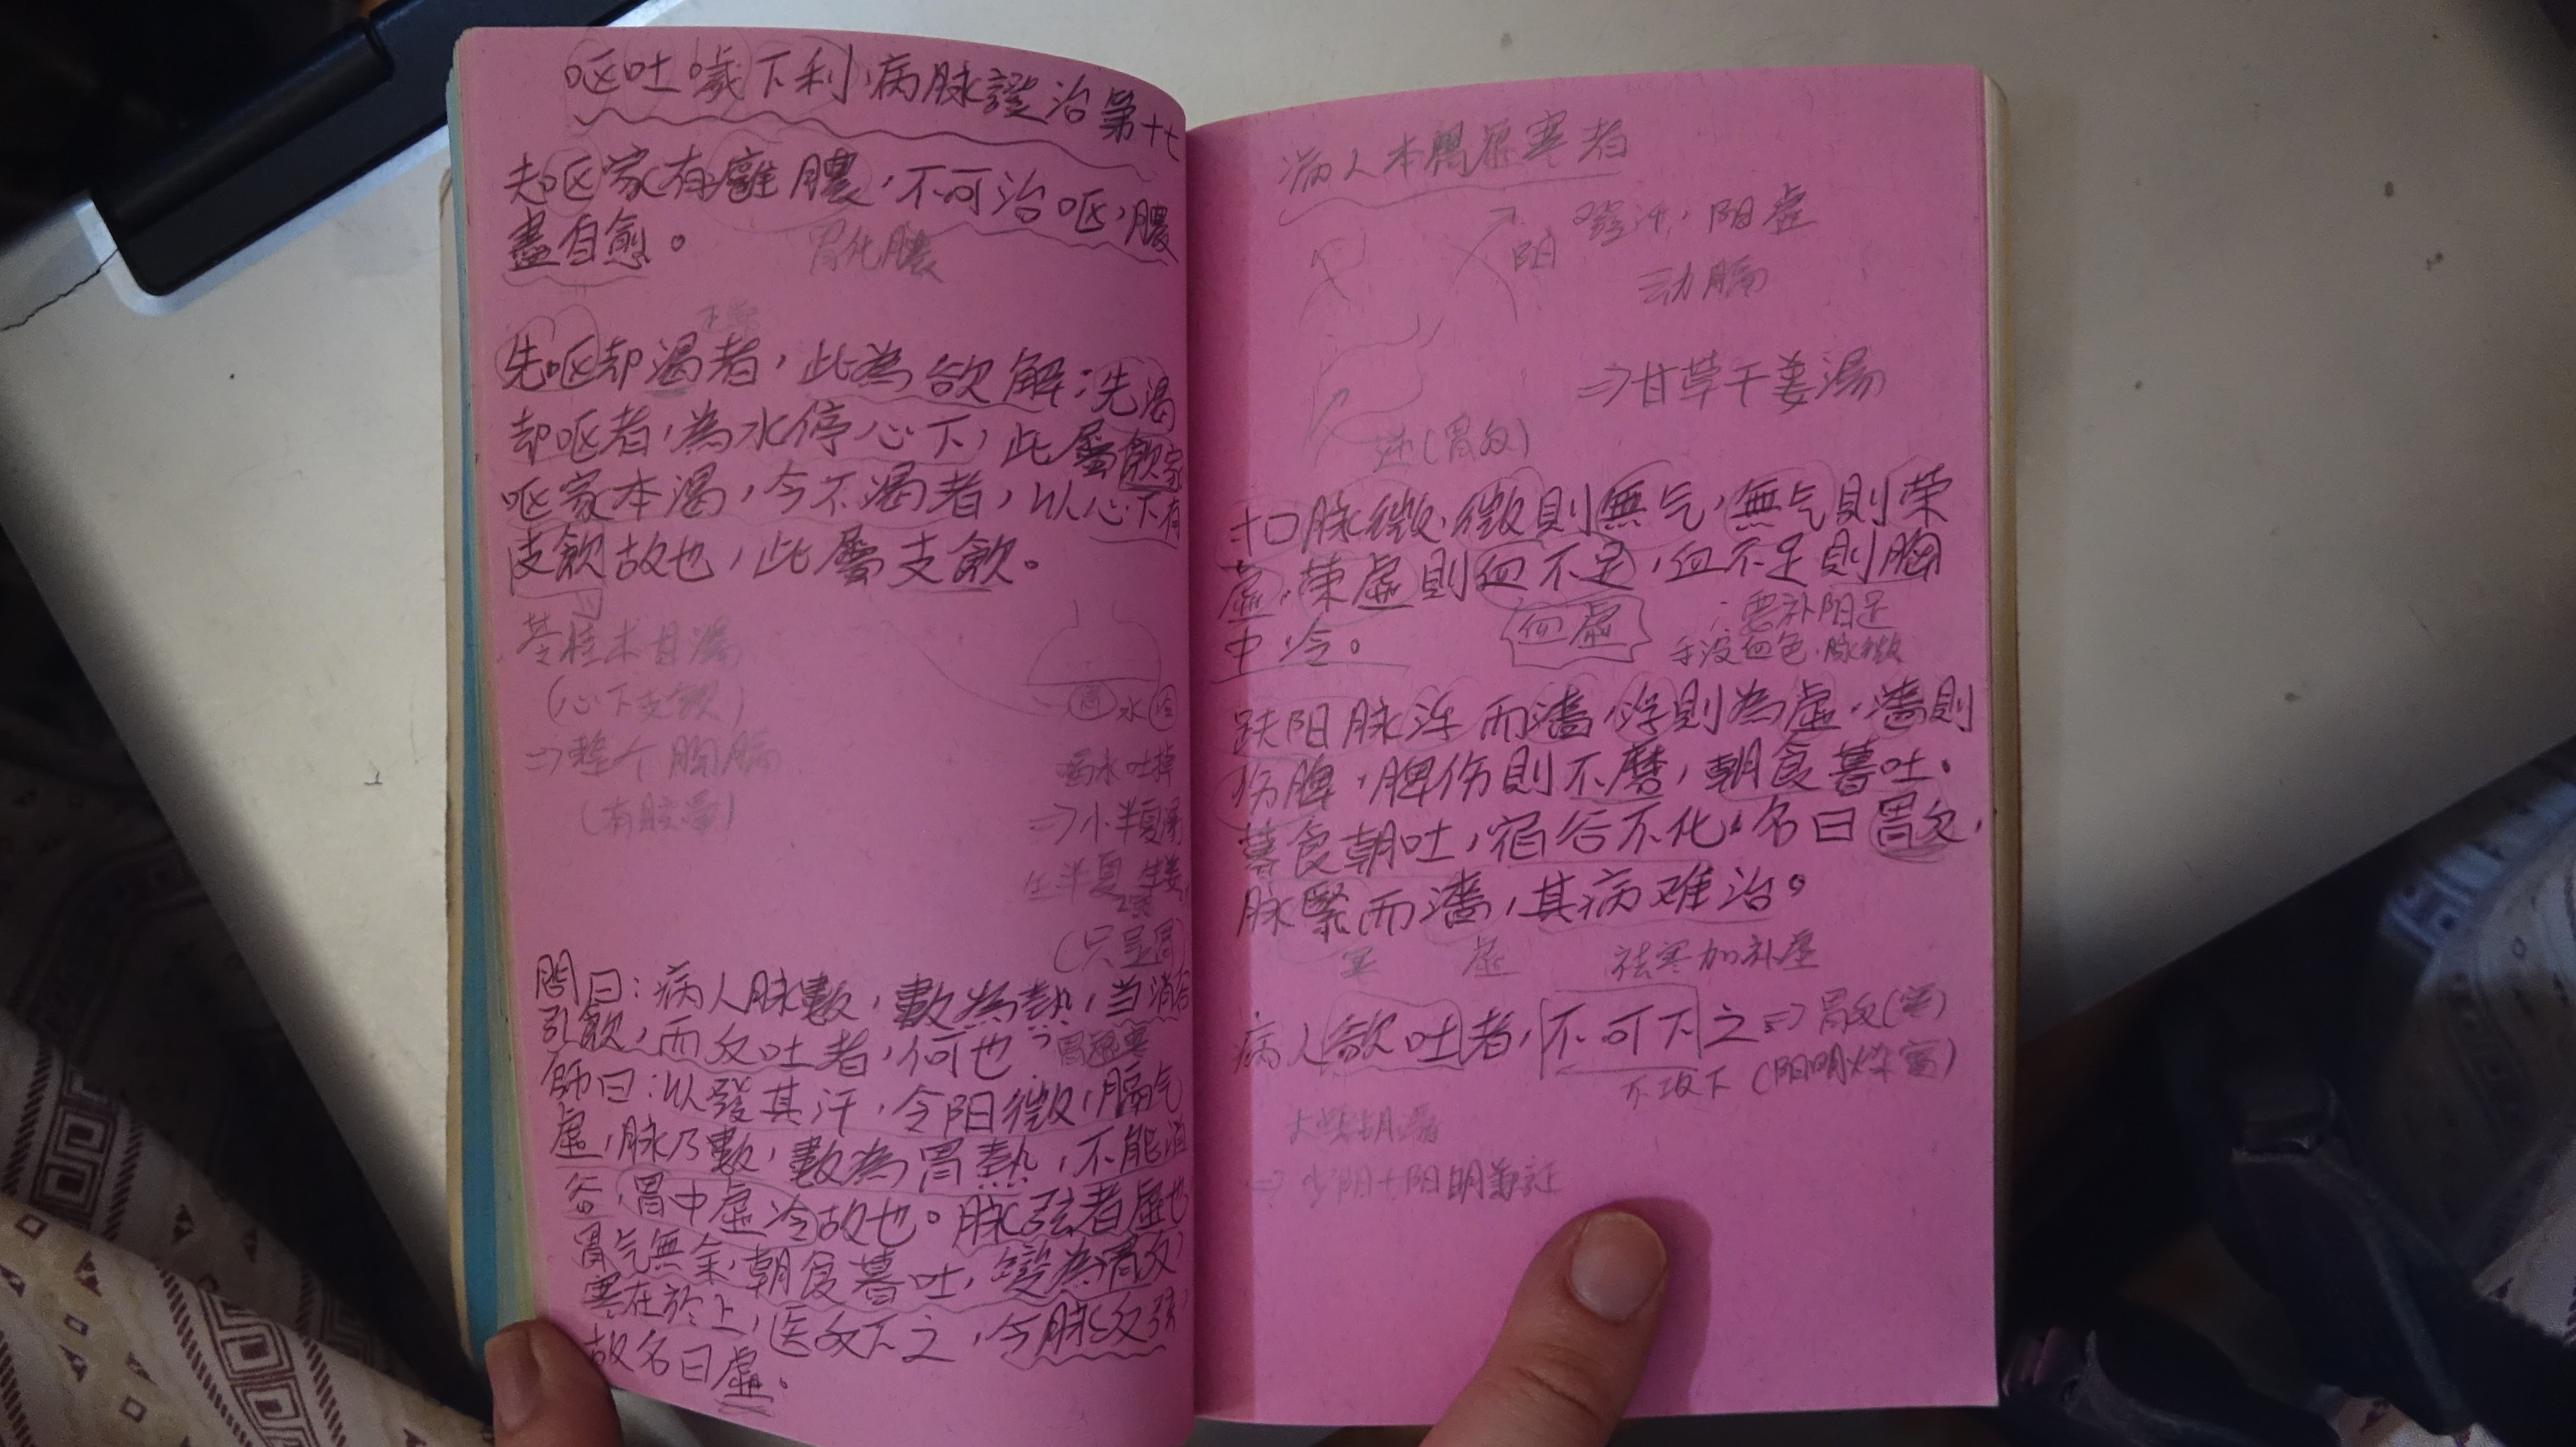 呕吐噦下利病脉證治第十七
夫呕家有癰膿，不可治呕，膿
盡自愈。
胃化膿
先呕却渴者，此為欲解；先渴
却呕者，為水停心下，此屬飲家
呕家本渴，今不渴者，以心下有
支飲故也，此屬支飲。
苓桂术甘湯
(心下支飲)
⇒整个胸膈
胃 水 冷
喝水吐掉
⇒小半夏湯
生半夏 生姜
(只是胃)
問曰：病人脉數，數為熱，当消谷
引飲，而反吐者，何也？
胃虛寒
師曰：以發其汗，令阳微，膈气
虛，脉乃數，數為胃熱，不能消
谷，胃中虛冷故也。脉弦者虛也
胃气無余，朝食暮吐，變為胃反，
寒在於上，医反下之，今脉反弦，
故名曰虛。
病人本胃虛寒者
阳 發汗，阳虛
⇒甘草干姜湯
逆(胃反)
寸口脉微，微則無气，無气則荣
虛，荣虛則血不足，血不足則胸
中冷。
血虛
∴要补阳足
手没血色，脉微
趺阳脉浮而濇，浮則為虛，濇則
伤脾，脾伤則不磨，朝食暮吐，
暮食朝吐，宿谷不化，名曰胃反，
脉緊而濇，其病难治。
虛 祛寒加补虛
病人欲吐者，不可下之⇒胃反(寒)
不攻下 (阳明燥實)
大柴胡湯
⇒少阳+阳明兼証